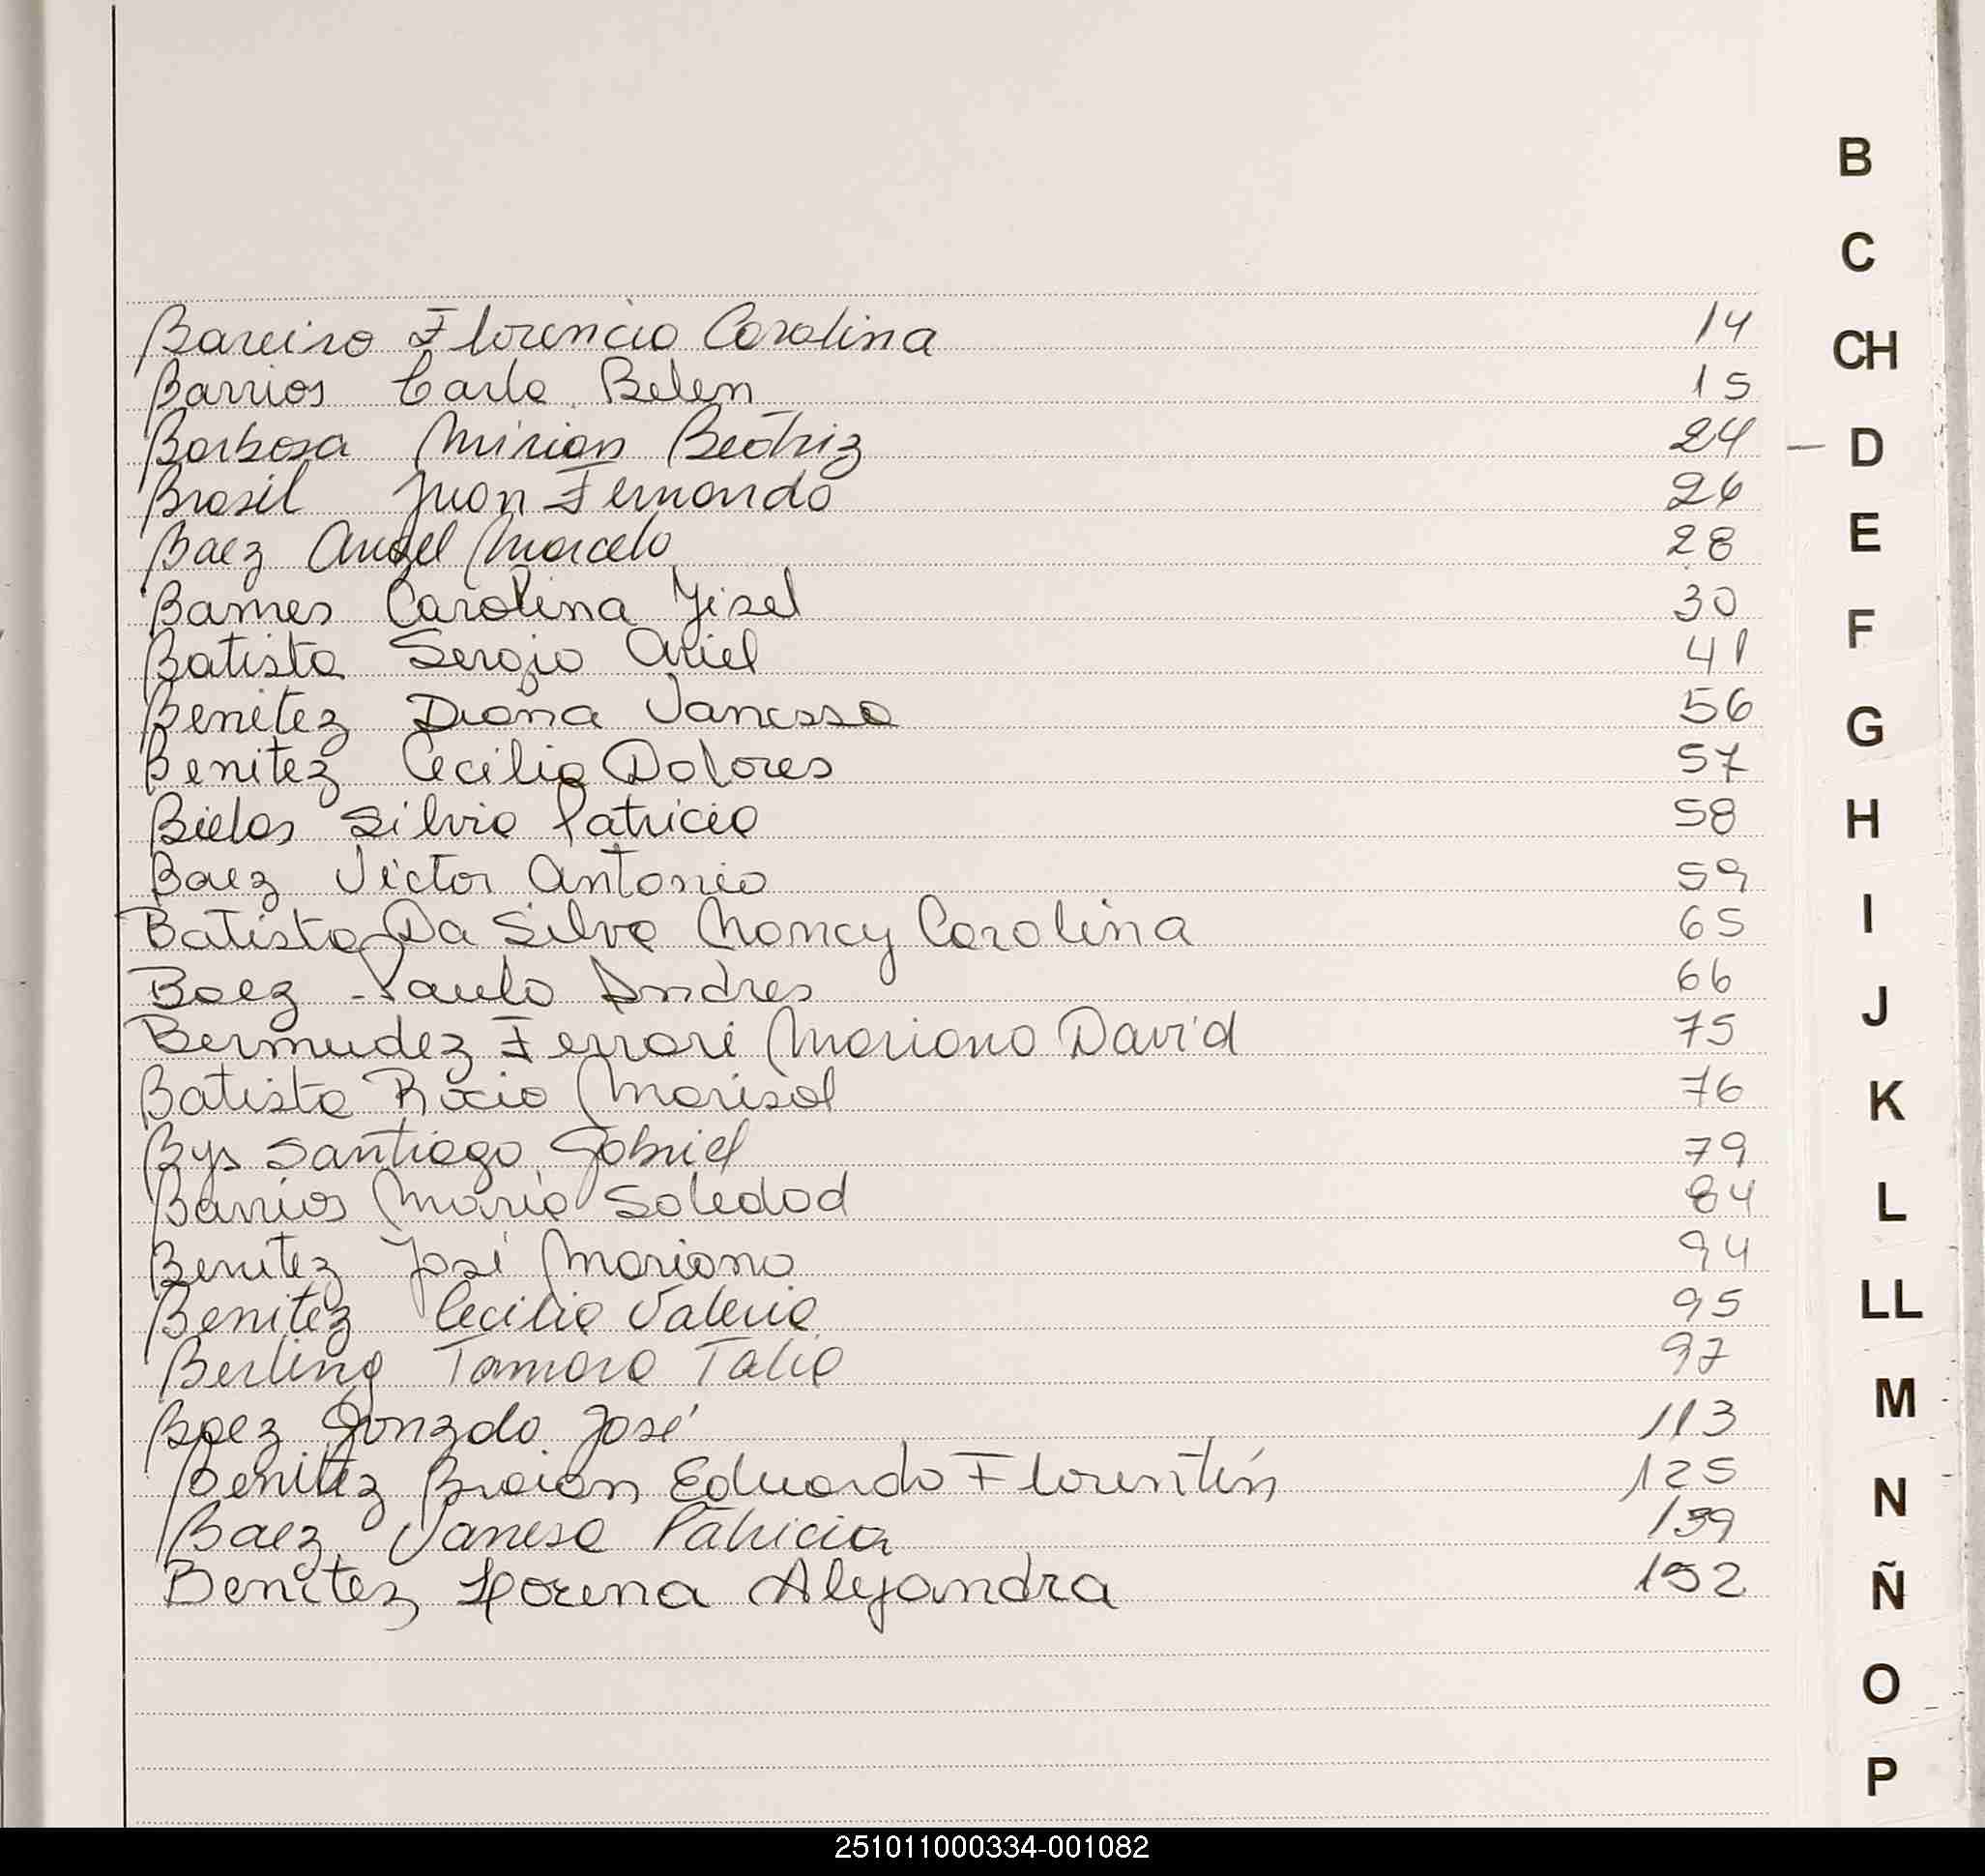 Bareiro Florencia Carolina 14
Barrios Carla Belen 15
Barbosa Mirian Beatriz 24 -
Brasil Juan Fernando 26
Baez Angel Marcelo 28
Barnes Carolina Yisel 30
Batista Sergio Ariel 41
Benitez Diana Vanessa 56
Benitez Cecilia Dolores 57
Bielas Silvia Patricia 58
Baez Victor Antonio 59
Batista Da Silva Nancy Carolina 65
Baez Paulo Andres 66
Bermudez Ferrari Mariano David 75
Batista Rocio Marisol 76
Bys Santiago Gabriel 79
Barrios Maria Soledad 84
Benitez José Mariano 94
Benitez Cecilia Valeria 95
Berling Tamara Talia 97
Baez Gonzalo José 113
Benitez Braian Eduardo Florentín 125
Baez Vanesa Patricia 139
Benitez Lorena Alejandra 152
B
C
CH
D
E
F
G
H
I
J
K
L
LL
M
N
Ñ
O
P
251011000334-001082